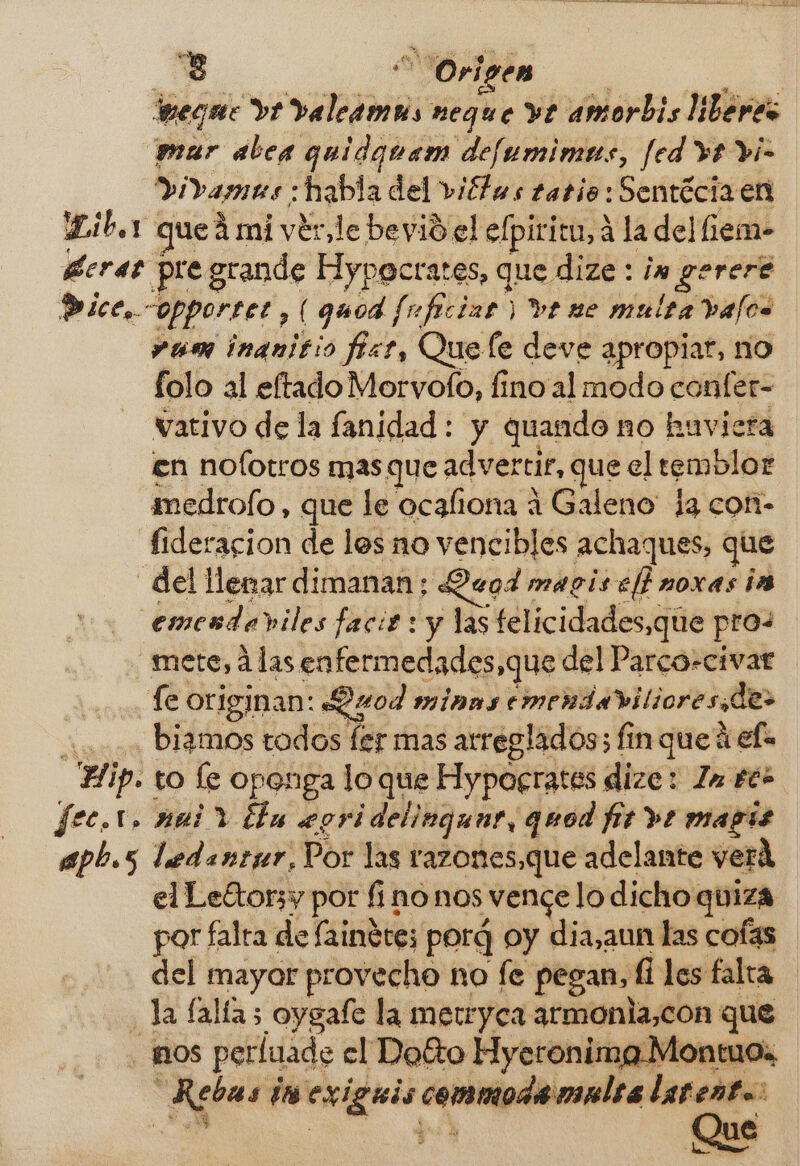 8 Origen
neque vt valeamus neque vt amorbis libere-
mur abea quidquam desumimus, sed vt vi-
vivamus : habla del victus tatio : Sentēcia en
Lib.1 que à mi vèr, le beviò el eſpiritu, à la del ſiem-
derat pre grande Hypocrates, que dize : in gerere
Dice. opportet , ( quod ſuficiat ) vt ne multa vaſo-
rum inanitio fiat, Que ſe deve apropiar, no
ſolo al eſtado Morvoſo, ſino al modo conſer-
vativo de la ſanidad : y quando no huviera
en noſotros mas que advertir, que el temblor
medroſo, que le ocaſiona à Galeno la con-
ſideracion de los no vencibles achaques, que
del llenar dimanan ; Quod magis eſt noxas in
emendaviles facit : y las felicidades, que pro-
mete, à las enfermedades, que del Parco-civat
ſe originan: Quod minus emendaviliores, de-
biamos todos ſer mas arreglados; ſin que à eſ-
Hip. to ſe oponga lo que Hypocrates dize : In te-
ſec.1. nui Y ctu ægri delinqunt, quod fit vt magis
aph.5 lædantur, Por las razones, que adelante verà
el Lector; y por ſi no nos vençe lo dicho quiza
por falta de ſainète; porq̃ oy dia, aun las coſas
del mayor provecho no ſe pegan, ſi les falta
la ſalſa ; oygaſe la metryca armonìa, con que
nos perſuade el Docto Hyeronimo Montuo.
Rebus in exiguis commoda multa latent.
Que